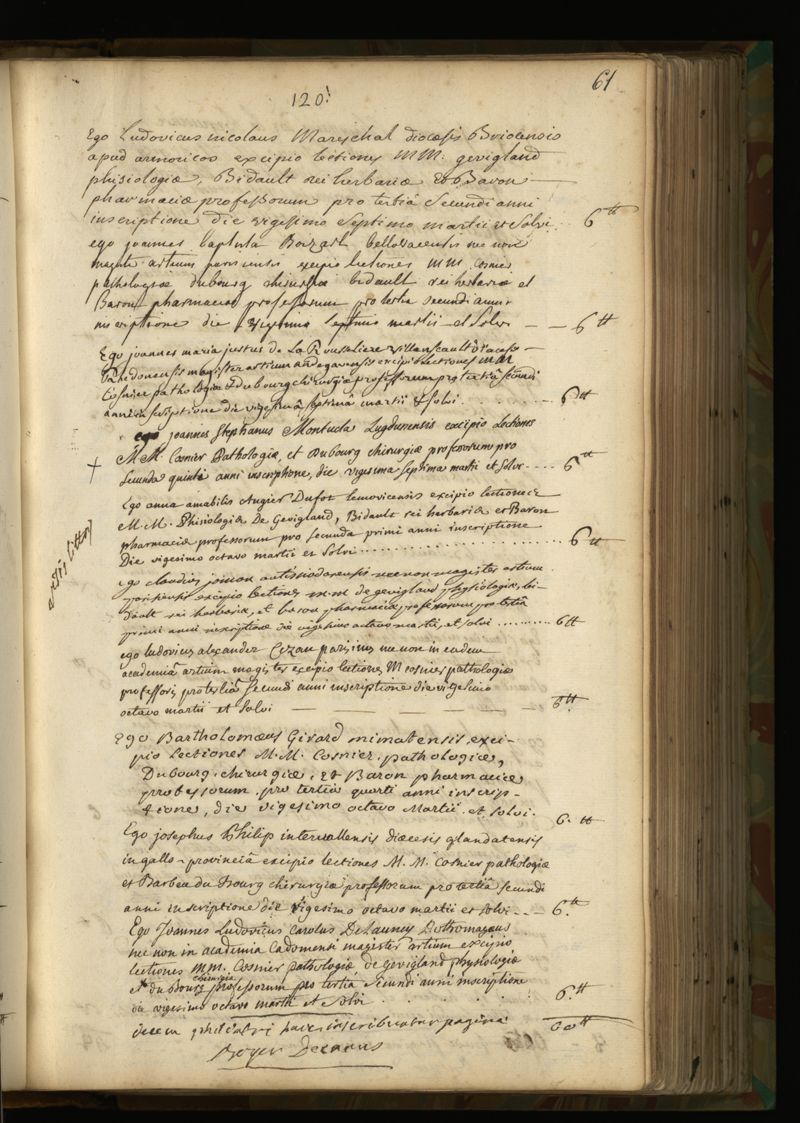 61
120.
Ego Ludovicus nicolaus Mareschal diocesis Briocensis
apud armoricos excipio lectiones MM. gevigland
phisiologiæ, Bidault rei herbariæ et Baron
pharmaciæ professorum pro tertia secundi anni
inscriptione die vigesimo septimo martii et solvi 6 tt
ego joannes baptista Bellovacensis nec non
artium parisiensis excipio lectiones MM. Cosnier
pathologiæ dubourg chirurgiæ bidault rei herbariæ et
Baron pharmaciæ professorum pro tertia secundi anni
inscriptione die vigesimo septimo martii et solvi 6 tt
Ego joannes maria justus de La Rousseliere
magister artium andegavensis excipio lectiones MM
Cosnier pathologiæ et dubourg chirurgiæ professorum pro tertiâ secundi
anni inscriptione die vigesimâ septimâ martii et solvi 6 tt
ego joannes Stephanus Montucla Lugdunensis excipio Lectiones
M M. Cosnier Pathologiæ, et Dubourg chirurgiæ professorum pro
secunda quinti anni inscriptione, die vigesima septima martii et solvi 6 tt
Ego anna amabilis Augier Dufot lemovicensis excipio lectiones
M. M. Phisiologiæ De Gevigland, Bidault rei herbariæ et Baron
pharmaciæ professorum pro secunda primi anni inscriptione
Die vigesimo octavo martii et solvi 6 tt
ego claudius autissiodorensis nec non magister artium
parisiensis excipio lectiones m.m. de gevigland physiologiæ, bi-
dault rei herbariæ, et baron pharmaciæ professorum pro tertiâ
primi anni inscriptione die vigesimo octavo martii, et solvi 6 tt
ego ludovicus alexander Cezan parisinus nec non in eadem
academiâ artium magister excipio lectiones M cosnier pathologiæ
professoris pro tertiâ secundi anni inscriptione die vigesimo
octavo martii et solvi 6 tt
Ego Bartholomæus Girard mimatensis exci-
pio Lectiones M. M. Cosnier pathologiæ,
Dubourg chirurgiæ, et Baron pharmaciæ
professorum pro tertia quarti anni inscrip-
tione, die vigesimo octavo Martii et solvi. 6. tt
Ego josephus Philip intervallensis diœcesis glandatensis
in gallo-provinciâ excipio lectiones M. M. Cosnier pathologiæ
et Barbeu du Bourg chirurgiæ professorum pro tertiâ secundi
anni inscriptione die vigesimo octavo martii et solvi 6. tt
Ego Joannes Ludovicus Carolus Delaunay Rothomagæus
nec non in academia Cadomensi magister artium excipio
lectiones MM. Cosnier pathologiæ, de gevigland physiologiæ
et du bourg chirurgiæ professorum pro tertia secundi anni inscriptione
die vigesimo octavo martii et solvi 6. tt
decem philiatri hac inscribuntur pagina 60 tt
Boyer Decanus